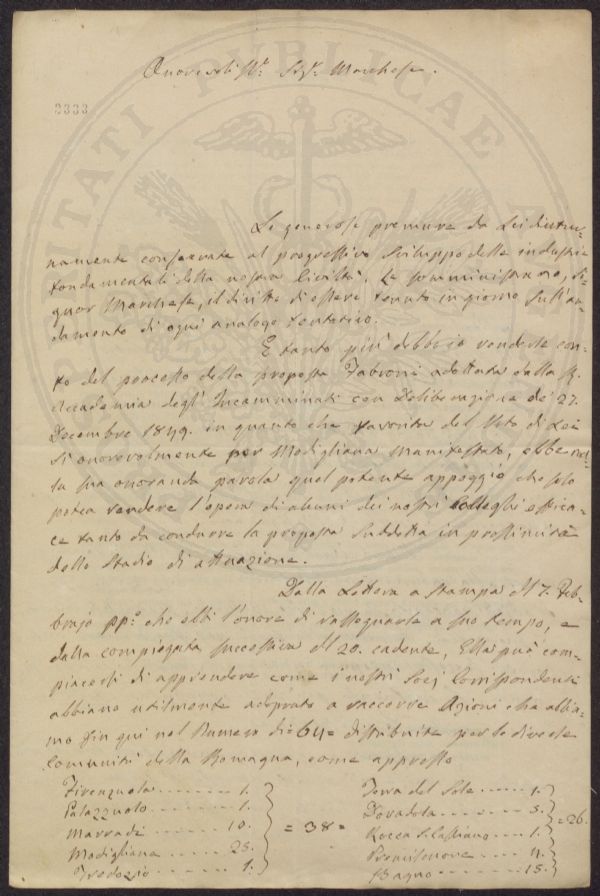 Onorevoliss.mo Sig.r Marchese.
2333
Le generose premure da Lei diutur-
namente conservate al progressivo sviluppo delle industrie
fondamentali della nostra Civiltà, Le somministrano, Si-
gnor Marchese, il diritto di essere tenuto in giorno sull'an-
damento di ogni analogo tentativo.
E tanto più debbo io renderle con-
to del processo della proposta Fabroni adottata dalla R.
Accademia degl'Incamminati con Deliberazione de' 27.
Decembre 1849. in quanto che favorita del Voto di Lei
sì onorevolmente per Modigliana manifestato, ebbe nel-
la sua onoranda parola quel potente appoggio che solo
potea rendere l'opera di alcuni dei nostri Colleghi effica-
ce tanto da condurre la proposta suddetta in prossimità
dello Stadio di attuazione.
Dalla Lettera a stampa del 7. Feb-
brajo pp.o che ebbi l'onore di rassegnarle a suo tempo, e
dalla compiegata successiva del 20. cadente, Ella può com-
piacersi di apprendere come i nostri Socj Corrispondenti
abbiano utilmente adoprato a raccorre Azioni che abbia-
mo fin quì nel Numero di = 64 = distribuite per le diverse
Comunità della Romagna, come appresso
Firenzuola - - - - - 1.
Palazzuolo - - - - - 1.
Marradi - - - - - 10.
Modigliana - - - - - 25.
Tredozio - - - - - 1.
= 38 =
Terra del Sole - - - - - 1.
Dovadola - - - - - 5.
Rocca S. Casciano - - - - 1.
Premilcuore - - - - 4.
Bagno - - - - - 15.
= 26.
PUBLICAE